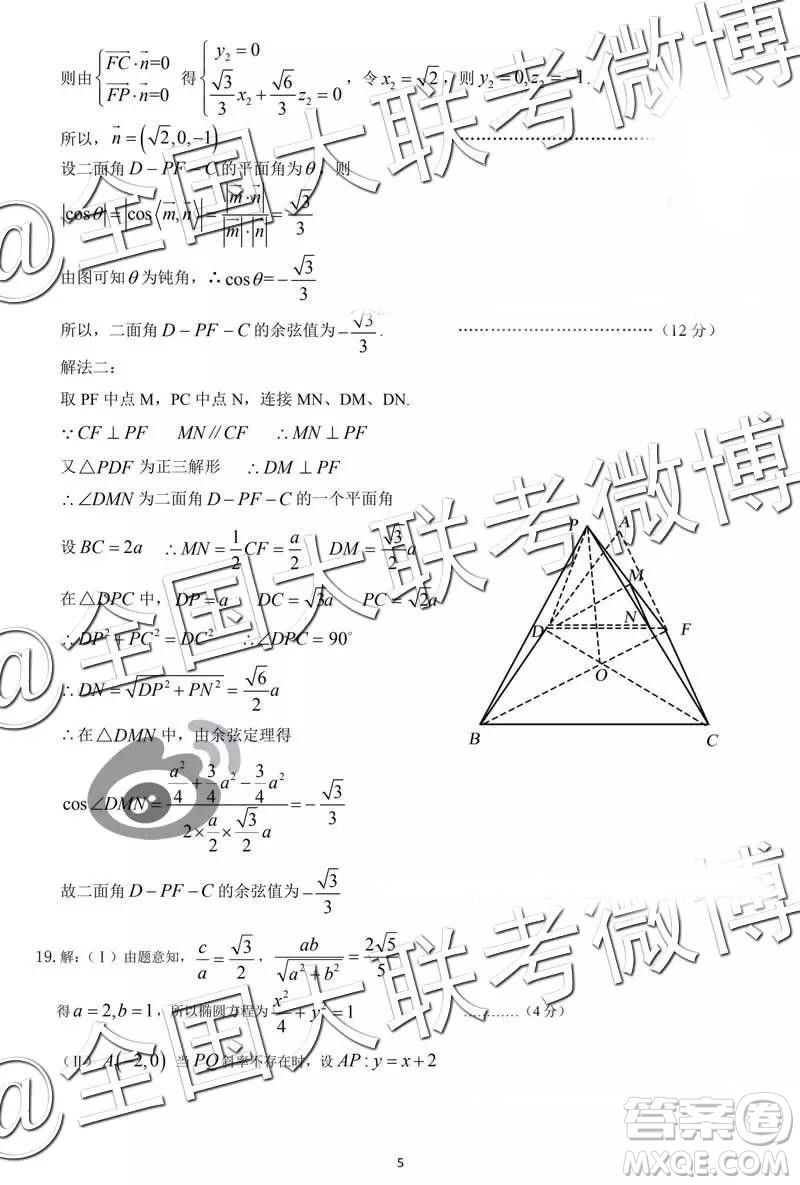 则由{FC·n=0 FP·n=0 得{y₂=0 √3/3 x₂+√6/3 z₂=0，令x₂=√2，则y₂=0,z₂=-1.
所以，n=(√2,0,-1)
设二面角D-PF-C的平面角为θ，则
|cosθ|=|cos⟨m,n⟩|=|m·n|/|m|·|n|=√3/3
由图可知θ为钝角，∴cosθ=-√3/3
所以，二面角D-PF-C的余弦值为-√3/3. ……………………………（12 分）
解法二：
取 PF 中点 M，PC 中点 N，连接 MN、DM、DN.
∵CF⊥PF MN∥CF ∴MN⊥PF
又△PDF为正三解形 ∴DM⊥PF
∴∠DMN为二面角D-PF-C的一个平面角
设BC=2a ∴MN=1/2CF=a/2 DM=√3/2a
在△DPC中，DP=a DC=√3a PC=√2a
∴DP²+PC²=DC² ∴∠DPC=90°
∴DN=√(DP²+PN²)=√6/2a
∴在△DMN中，由余弦定理得
cos∠DMN=(a²/4+3/4a²-3/4a²)/(2×a/2×√3/2a)=-√3/3
故二面角D-PF-C的余弦值为-√3/3
P A
M
N
D F
O
B C
19.解：（Ⅰ）由题意知，c/a=√3/2，ab/√(a²+b²)=2√5/5
得a=2,b=1，所以椭圆方程为x²/4+y²=1 …………（4 分）
（Ⅱ）A(-2,0) 当PQ斜率不存在时，设AP:y=x+2
5
@全国大联考微博
@全国大联考微博
@全国大联考微博
答案卷
MXQE.COM